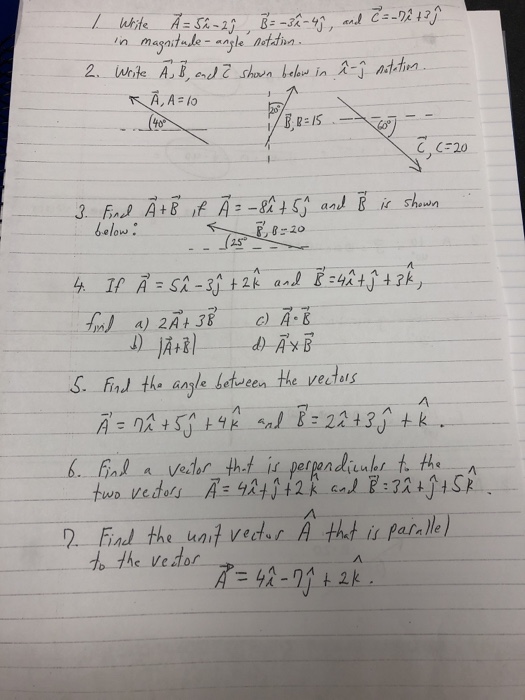 1. Write A⃗ = 5î - 2ĵ, B⃗ = -3î - 4ĵ, and C⃗ = -7î + 3ĵ
in magnitude-angle notation.
2. Write A⃗, B⃗, and C⃗ shown below in î-ĵ notation.
A⃗, A = 10
40°
20°
B⃗, B = 15
60°
C⃗, C = 20
3. Find A⃗ + B⃗ if A⃗ = -8î + 5ĵ and B⃗ is shown
below:
B⃗, B = 20
25°
4. If A⃗ = 5î - 3ĵ + 2k̂ and B⃗ = 4î + ĵ + 3k̂,
find a) 2A⃗ + 3B⃗ c) A⃗ • B⃗
b) |A⃗ + B⃗| d) A⃗ × B⃗
5. Find the angle between the vectors
A⃗ = 7î + 5ĵ + 4k̂ and B⃗ = 2î + 3ĵ + k̂.
6. Find a vector that is perpendicular to the
two vectors A⃗ = 4î + ĵ + 2k̂ and B⃗ = 3î + ĵ + 5k̂.
7. Find the unit vector Â that is parallel
to the vector
A⃗ = 4î - 7ĵ + 2k̂.